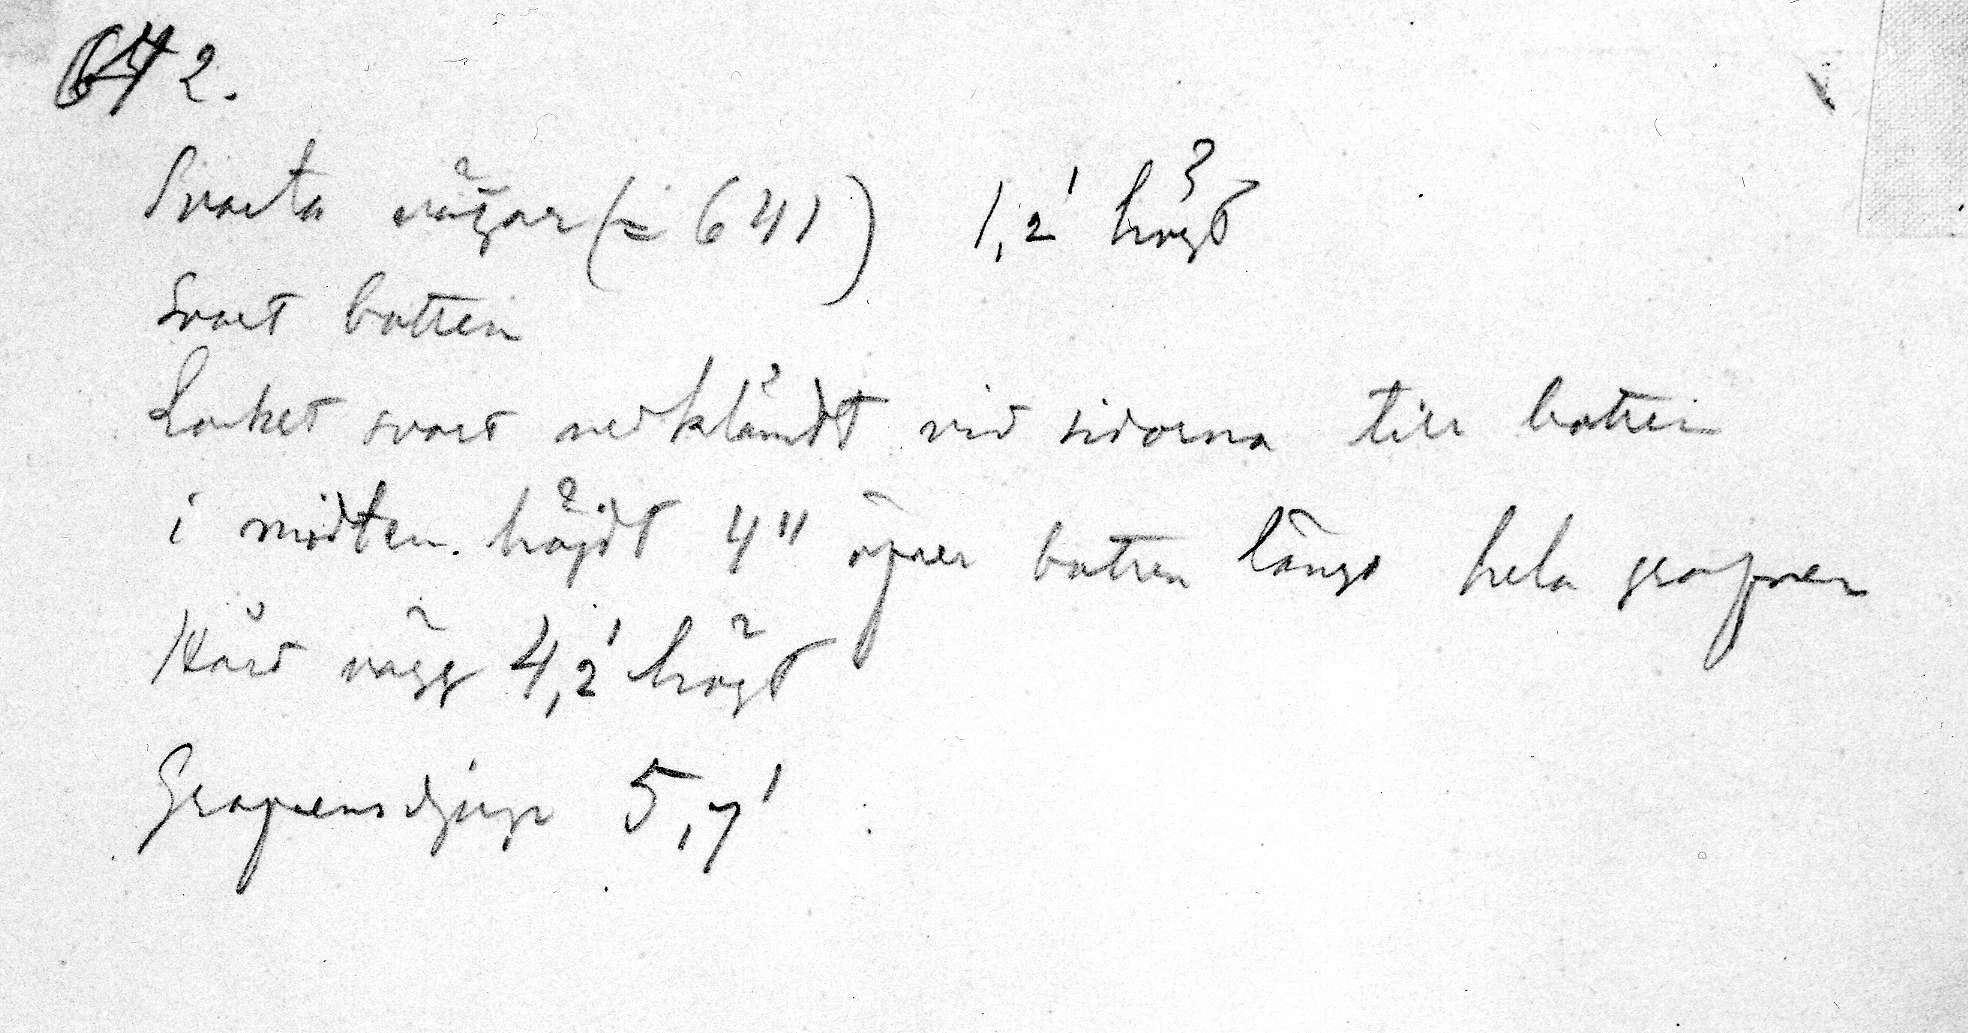 642.
Svarta väggar (= 641) 1,2' högt
Svart botten
Locket svart nedklämdt vid sidorna till botten
i midten höjdt 4" öfver botten längs hela grafven
Hård vägg 4,2' högt
Grafvens djup 5,7'